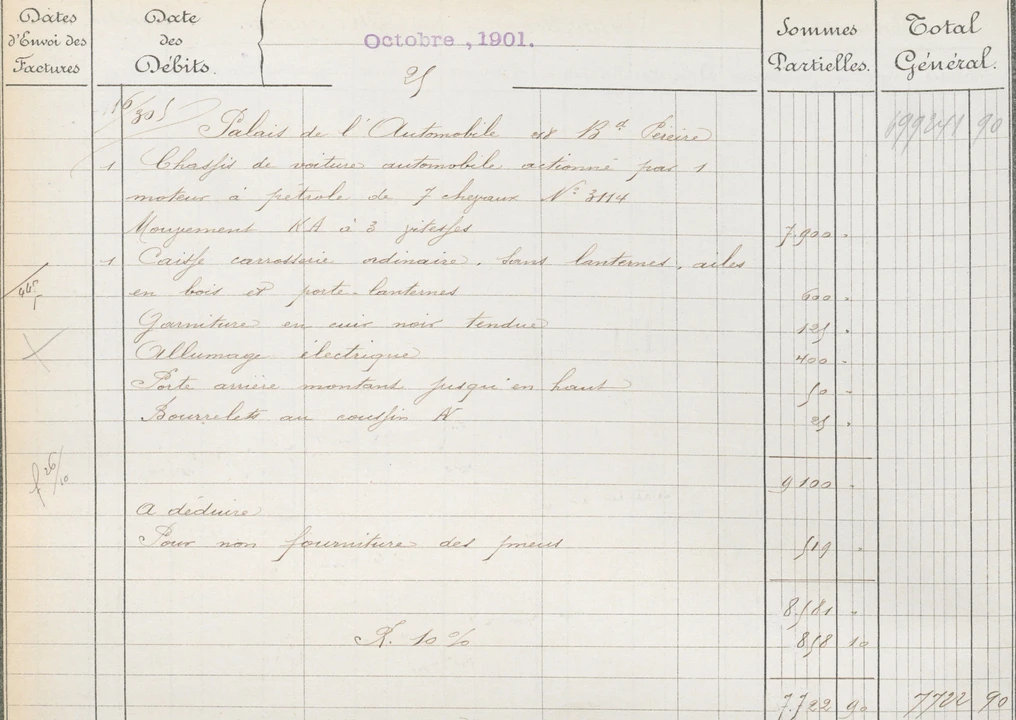 Dates d'Envoi des Factures
Date des Débits.
Octobre, 1901.
25
Sommes Partielles.
Total Général.
16/305
699241 90
Palais de l'Automobile 218 Bd Pereire
1 Chassis de voiture automobile actionné par 1
moteur à pétrole de 7 chevaux No 3114
Mouvement KA à 3 vitesses 7.900 "
1 Caisse carrosserie ordinaire. Sans lanternes. ailes
en bois et porte-lanternes 600 "
Garniture en cuir noir tendue 125 "
Allumage électrique 400 "
Porte arrière montant jusqu'en haut 50 "
Bourrelets au coussin N 25 "
9100 "
f 26/10
A déduire
Pour non fourniture des pneus 519 "
8581 "
R. 10 % 858 10
7.722 90 7722 90